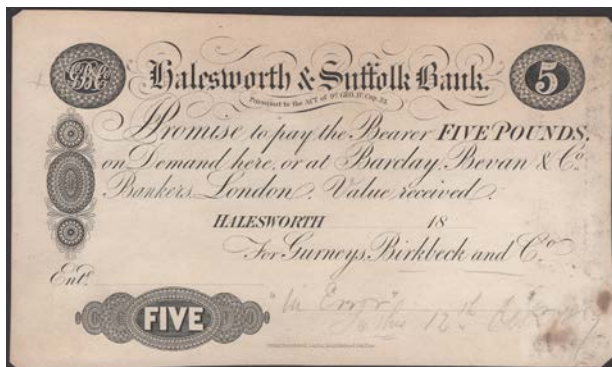 Halesworth & Suffolk Bank. 5
Pursuant to the ACT of 9th GEO. IV Cap. 23.
I Promise to pay the Bearer FIVE POUNDS.
on Demand here, or at Barclay, Bevan & Co.
Bankers, London. Value received.
HALESWORTH 18
For Gurneys, Birkbeck and Co.
Entd.
FIVE
"In Error"
this 12th